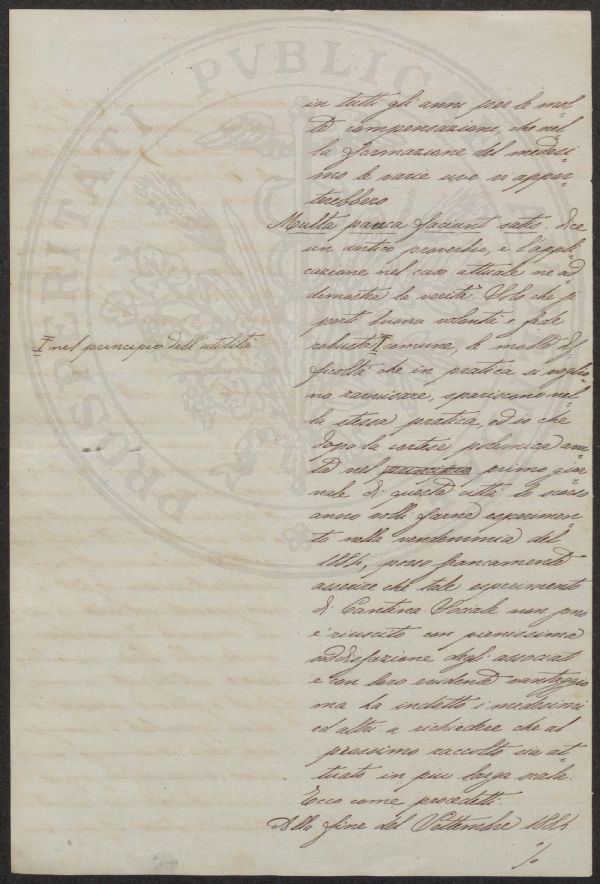 in tutti gli anni, per le mol=
te compensazioni, che nel=
la formazione del medesi=
mo le varie uve vi appor=
terebbero.
Multa pauca faciunt satis, dice
un antico proverbio, e l'appli=
cazione nel caso attuale ne ad=
dimostra la verità. Solo che si
porti buona volontà e fede
robusta I comune, le molte dif=
ficoltà che in pratica si voglio=
no ravvisare, spariscono nel=
la stessa pratica, ed io che
dopo la cortese polemica avu=
ta nel primo gior=
nale di questa città lo scorso
anno volli farne esperimen=
to nella vendemmia del
1884, posso francamente
asserire che tale esperimento
di Cantina Sociale non solo
è riuscito con pienissima
soddisfazione degli associati
e con loro evidente vantaggio
ma ha indotto i medesimi
ed altri a richiedere che al
prossimo raccolto sia at=
tuato in più larga scala.
Ecco come procedetti.
Alla fine del Settembre 1884
%
I nel principio dell'utilità
PROSPERITATI PVBLICAE